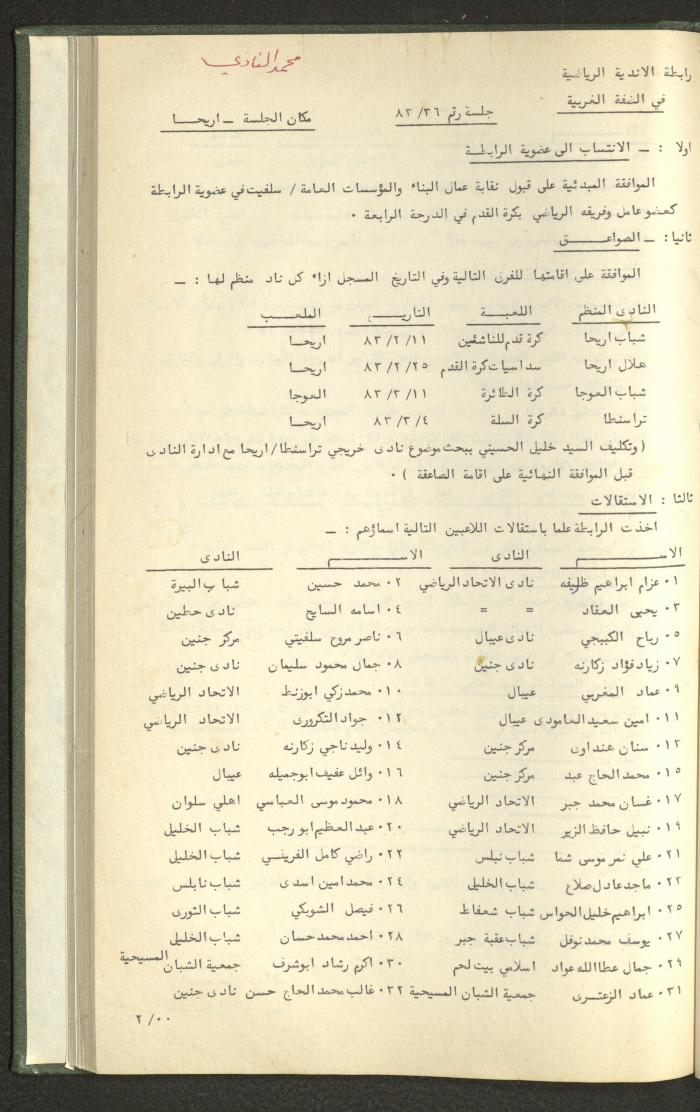 محمد النادي
رابطة الاندية الرياضية
في الضفة الغربية
جلسة رقم ٨٣/٣٦
مكان الجلسة ــ اريحــا
اولا : ــ الانتساب الى عضوية الرابطة
الموافقة المبدئية على قبول نقابة عمال البناء والمؤسسات العامة / سلفيت في عضوية الرابطة
كعضو عامل وفريقه الرياضي بكرة القدم في الدرجة الرابعة ٠
ثانيا : ــ الصواعــق
الموافقة على اقامتها للفرق التالية وفي التاريخ المسجل ازاء كل ناد منظم لها : ــ
النادى المنظم اللعبــة التاريــخ الملعــب
شباب اريحا كرة قدم للناشئين ٨٣/٢/١١ اريحــا
هلال اريحا سداسيات كرة القدم ٨٣/٢/٢٥ اريحــا
شباب العوجا كرة الطائرة ٨٣/٣/١١ العوجا
تراسنطا كرة السلة ٨٣/٣/٤ اريحــا
( وتكليف السيد خليل الحسيني ببحث موضوع نادى خريجي تراسنطا/اريحا مع ادارة النادى
قبل الموافقة النهائية على اقامة الصاعقة ) ٠
ثالثا : الاستقالات
اخذت الرابطة علما باستقالات اللاعبين التالية اسماؤهم : ــ
الاســـم النادى الاســـم النادى
٠١ عزام ابراهيم ظريفه نادى الاتحاد الرياضي ٠٢ محمد حسين شباب البيرة
٠٣ يحيى العقاد = = ٠٤ اسامه السايح نادى حطين
٠٥ رباح الكبيجي نادى عيبال ٠٦ ناصر مروح سلفيتي مركز جنين
٠٧ زياد فؤاد زكارنه نادى جنين ٠٨ جمال محمود سليمان نادى جنين
٠٩ عماد المغربي عيبال ٠١٠ محمد زكي ابوزنط الاتحاد الرياضي
٠١١ امين سعيد العامودى عيبال ٠١٢ جواد التكرورى الاتحاد الرياضي
٠١٣ سنان هنداوى مركز جنين ٠١٤ وليد ناجي زكارنه نادى جنين
٠١٥ محمد الحاج عبد مركز جنين ٠١٦ وائل عفيف ابوجميله عيبال
٠١٧ غسان محمد جبر الاتحاد الرياضي ٠١٨ محمود موسى العباسي اهلي سلوان
٠١٩ نبيل حافظ الزير الاتحاد الرياضي ٠٢٠ عبد العظيم ابو رجب شباب الخليل
٠٢١ علي نمر موسى شما شباب نبلس ٠٢٢ راضي كامل شباب الخليل
٠٢٣ ماجد عادل صلاح شباب الخليل ٠٢٤ محمد امين اسدى شباب نابلس
٠٢٥ ابراهيم خليل الحواس شباب شعفاط ٠٢٦ فيصل الشوبكي شباب الثورى
٠٢٧ يوسف محمد نوفل شباب عقبة جبر ٠٢٨ احمد محمد حسان شباب الخليل
٠٢٩ جمال عطاالله عواد اسلامي بيت لحم ٠٣٠ اكرم رشاد ابوشرف جمعية الشبان المسيحية
٠٣١ عماد الزعترى جمعية الشبان المسيحية ٠٣٢ غالب محمد الحاج حسن نادى جنين
٠٠/ ٢